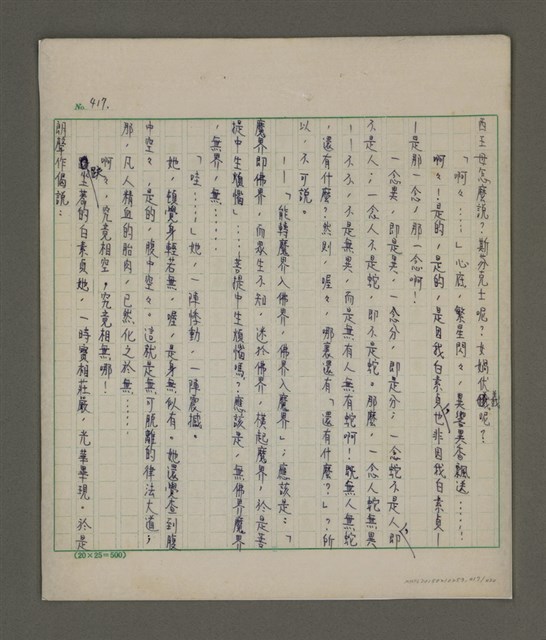 No. 417.
西王母怎麼說？斯芬克士呢？女媧伏羲呢？
「啊々……」心底，繁星閃々，異響異香飄送……！
啊々！是的，是的，是因我白素貞也非因我白素貞—
—是那一念，那一念啊！
一念異，即是異，一念分，即是分；一念蛇不是人，即
不是人；一念人不是蛇，即不是蛇。那麼，一念人蛇無異
—不々，不是無異，而是無有人無有蛇啊！既無人無蛇
，還有什麼？然則，喔々，哪裏還有「還有什麼？」？所
以，不可說。
——「能轉魔界入佛界，佛界入魔界」；應該是：「
魔界即佛界，而眾生不知，迷於佛界，橫起魔界，於是菩
提中生煩惱」……菩提中生煩惱嗎？應該是，無佛界魔界
，無界，無……
「哇……」她，一陣悸動，一陣震撼。
她，頓覺身輕若無，喔，是身無似有。她還覺查到腹
中空々，是的，腹中空々。這就是無可脫離的律法大道，
那，凡人精血的胎肉，已然化之於無……
啊々，究竟相空，究竟相無哪！
趺坐著的白素貞她，一時寶相莊嚴，光華畢現。於是
朗聲作偈說：
(20×25=500)